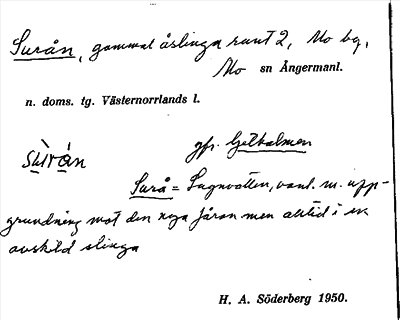 Surån, gammal åslinga runt 2, Mo by,
Mo sn Ångermanl.
n. doms. tg. Västernorrlands l.
jfr. Getholmen
Surå = Lugnvatten, vanl. m. upp-
grundning mot den nya fåran men alltid i en
avskild slinga
H. A. Söderberg 1950.